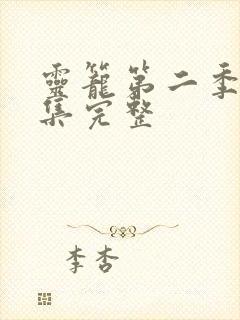 靈籠第二季
集完整
李杏